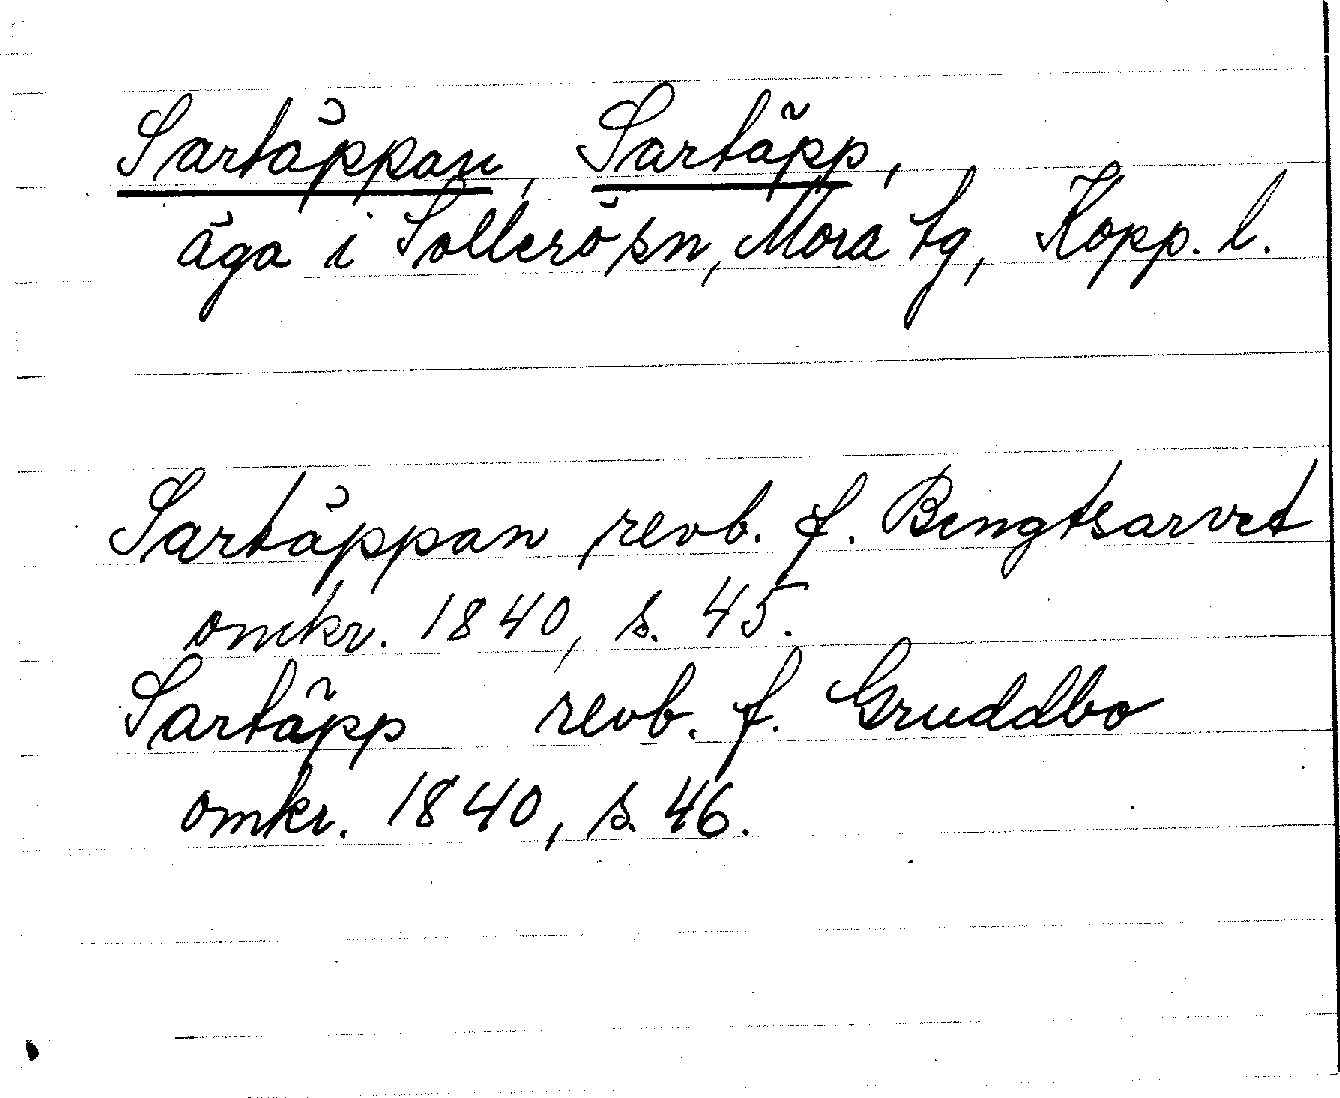 Sartäppan, Sartäpp,
äga i Sollerö sn, Mora tg, Kopp. l.
Sartäppan revb. f. Bengtsarvet
omkr. 1840, s. 45.
Sartäpp revb. f. Gruddbo
omkr. 1840, s. 46.